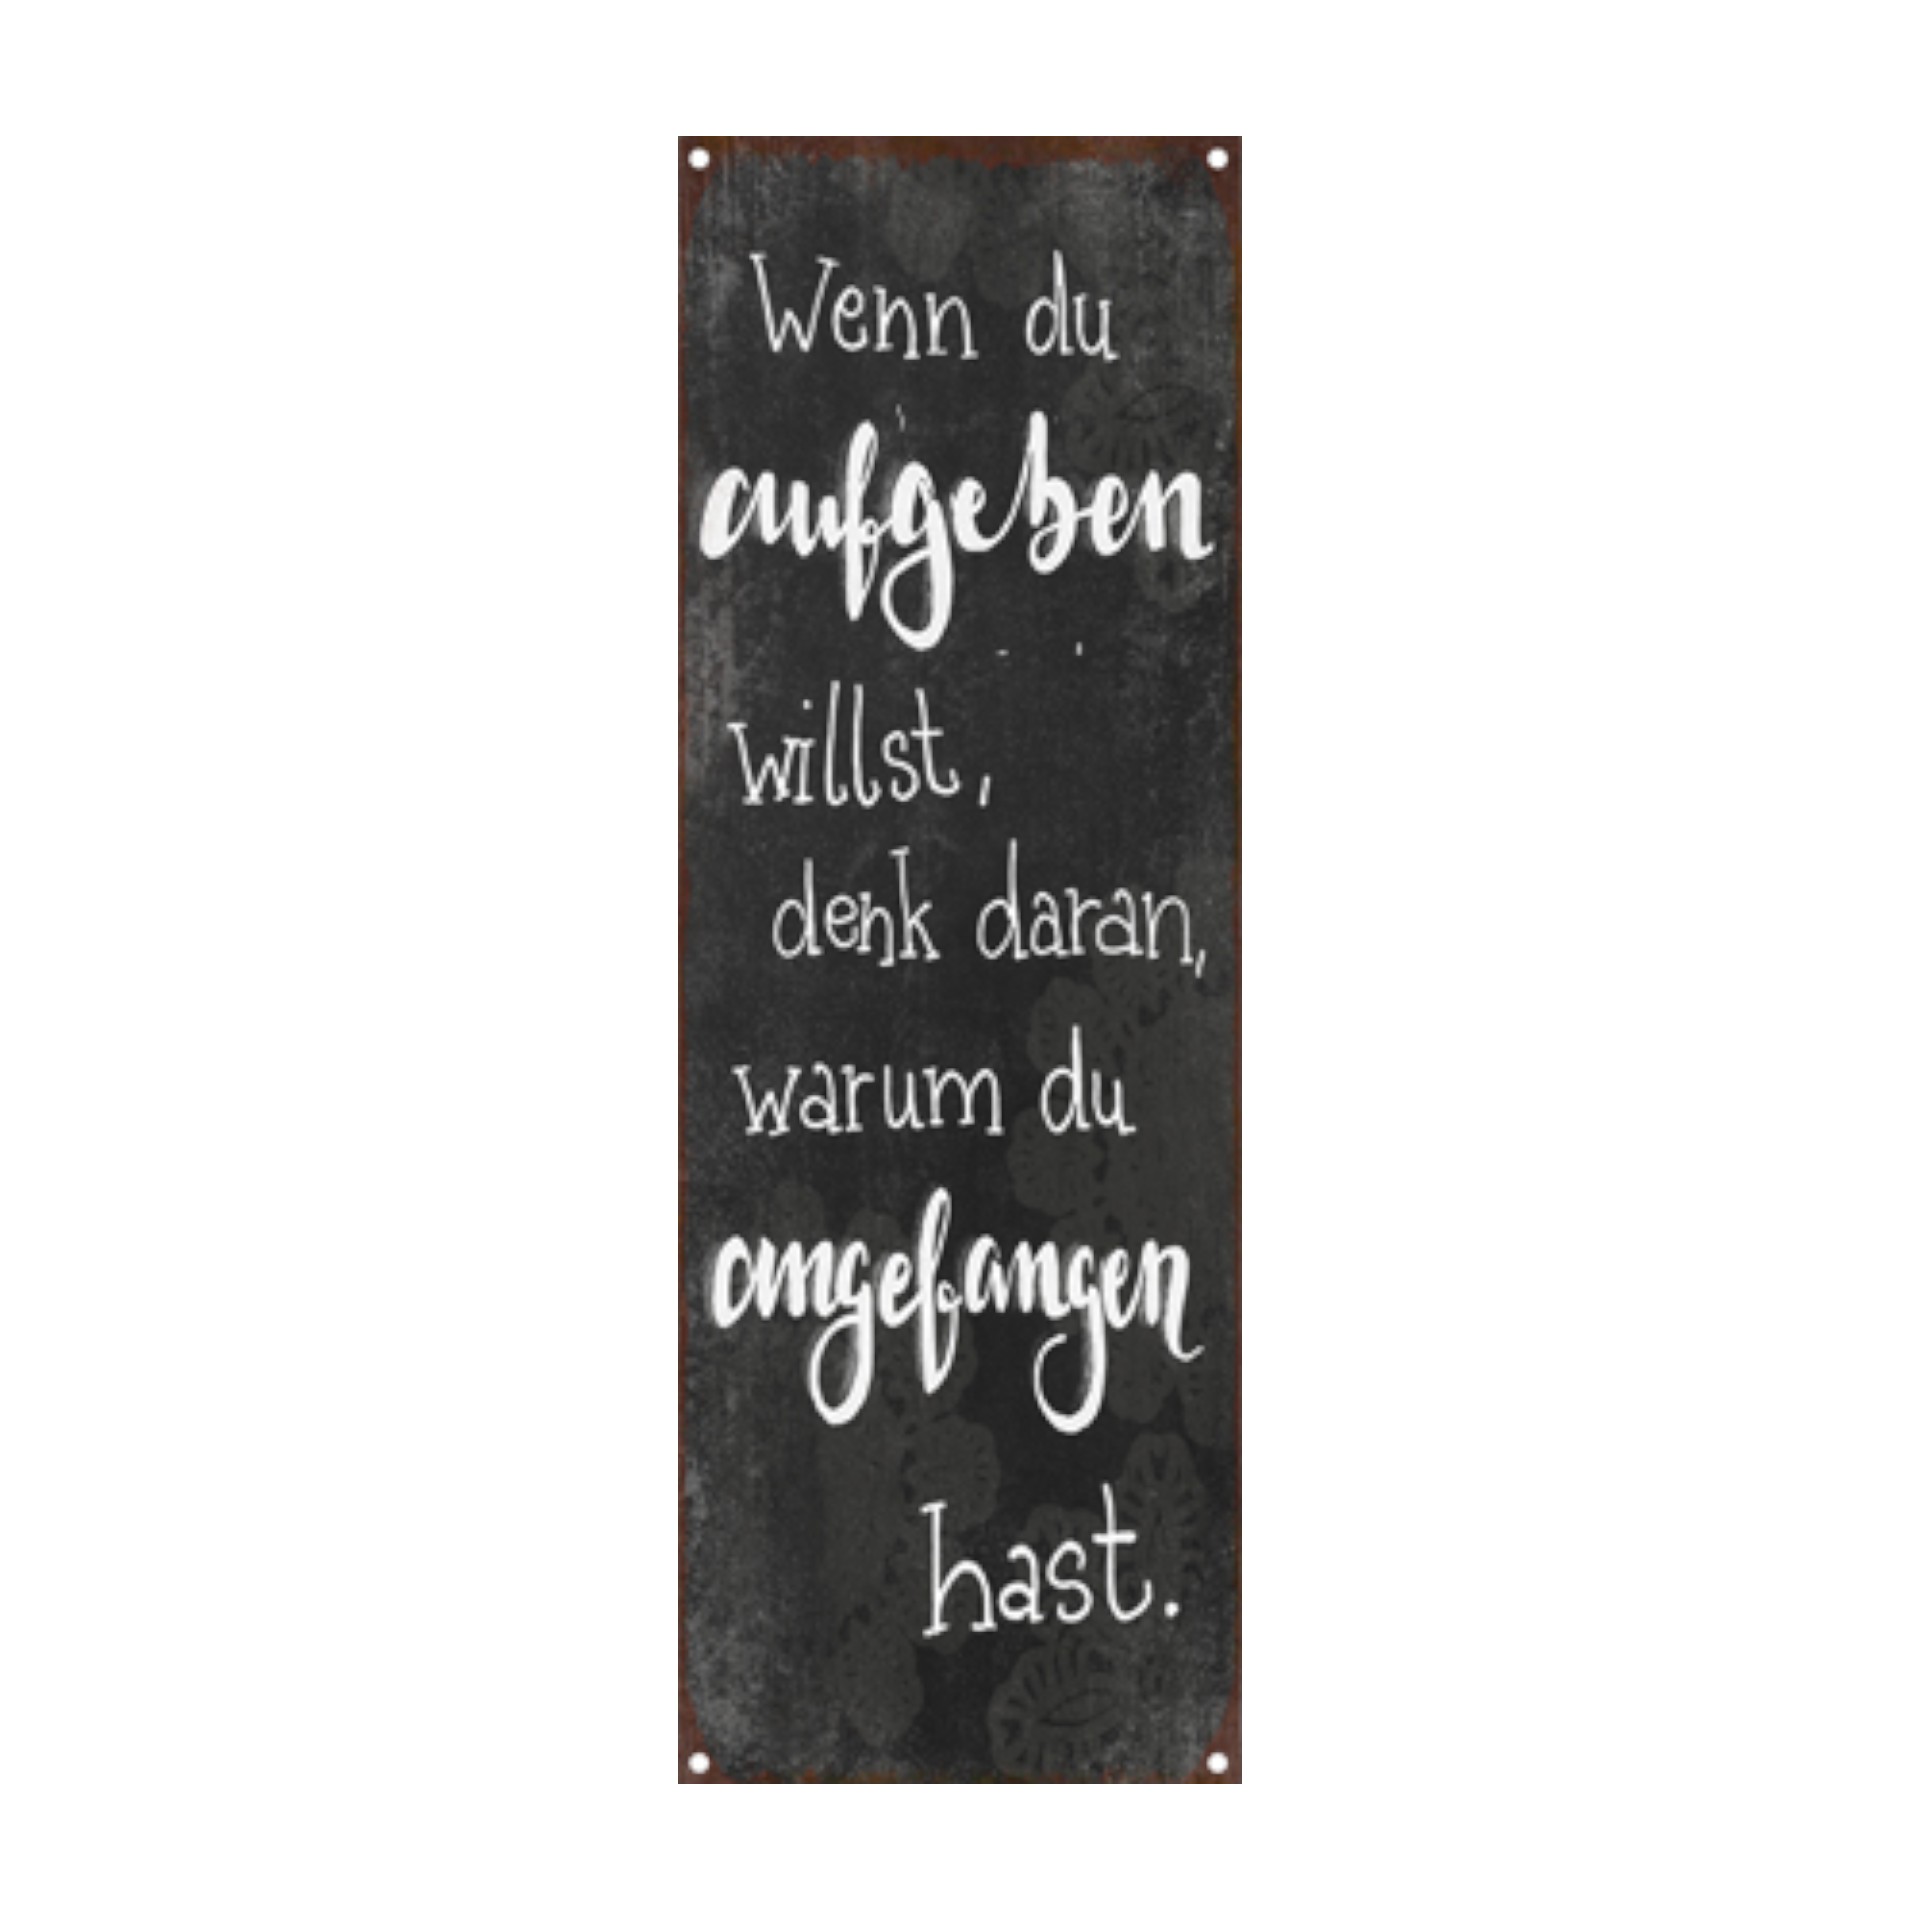 Wenn du
aufgeben
willst,
denk daran,
warum du
angefangen
hast.